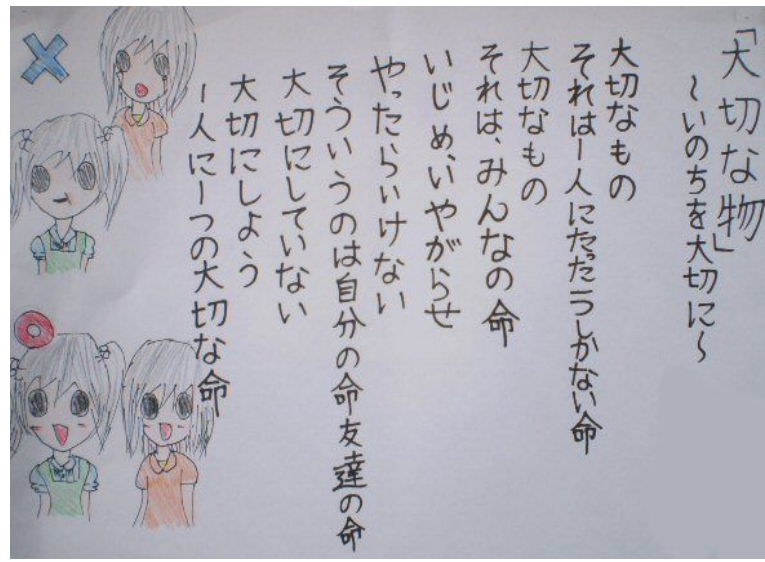 「大切な物」
～いのちを大切に～
大切なもの
それは一人にたった一つしかない命
大切なもの
それは、みんなの命
いじめ、いやがらせ
やったらいけない
そういうのは自分の命友達の命
大切にしていない
大切にしよう
一人に一つの大切な命